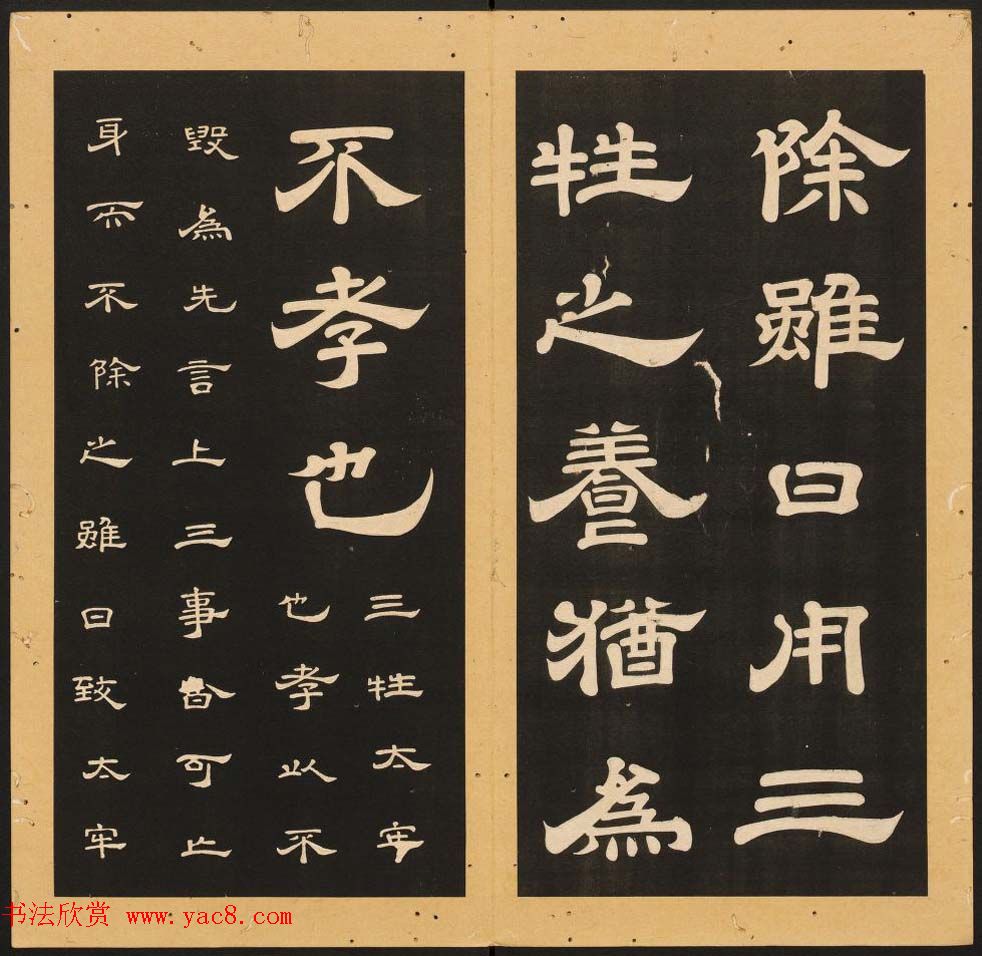 除雖曰用三
牲之養猶爲
不孝也
三牲太牢
也孝以不
毀爲先言上三事皆可亡
身而不除之雖曰致太牢
书法欣赏 www.yac8.com